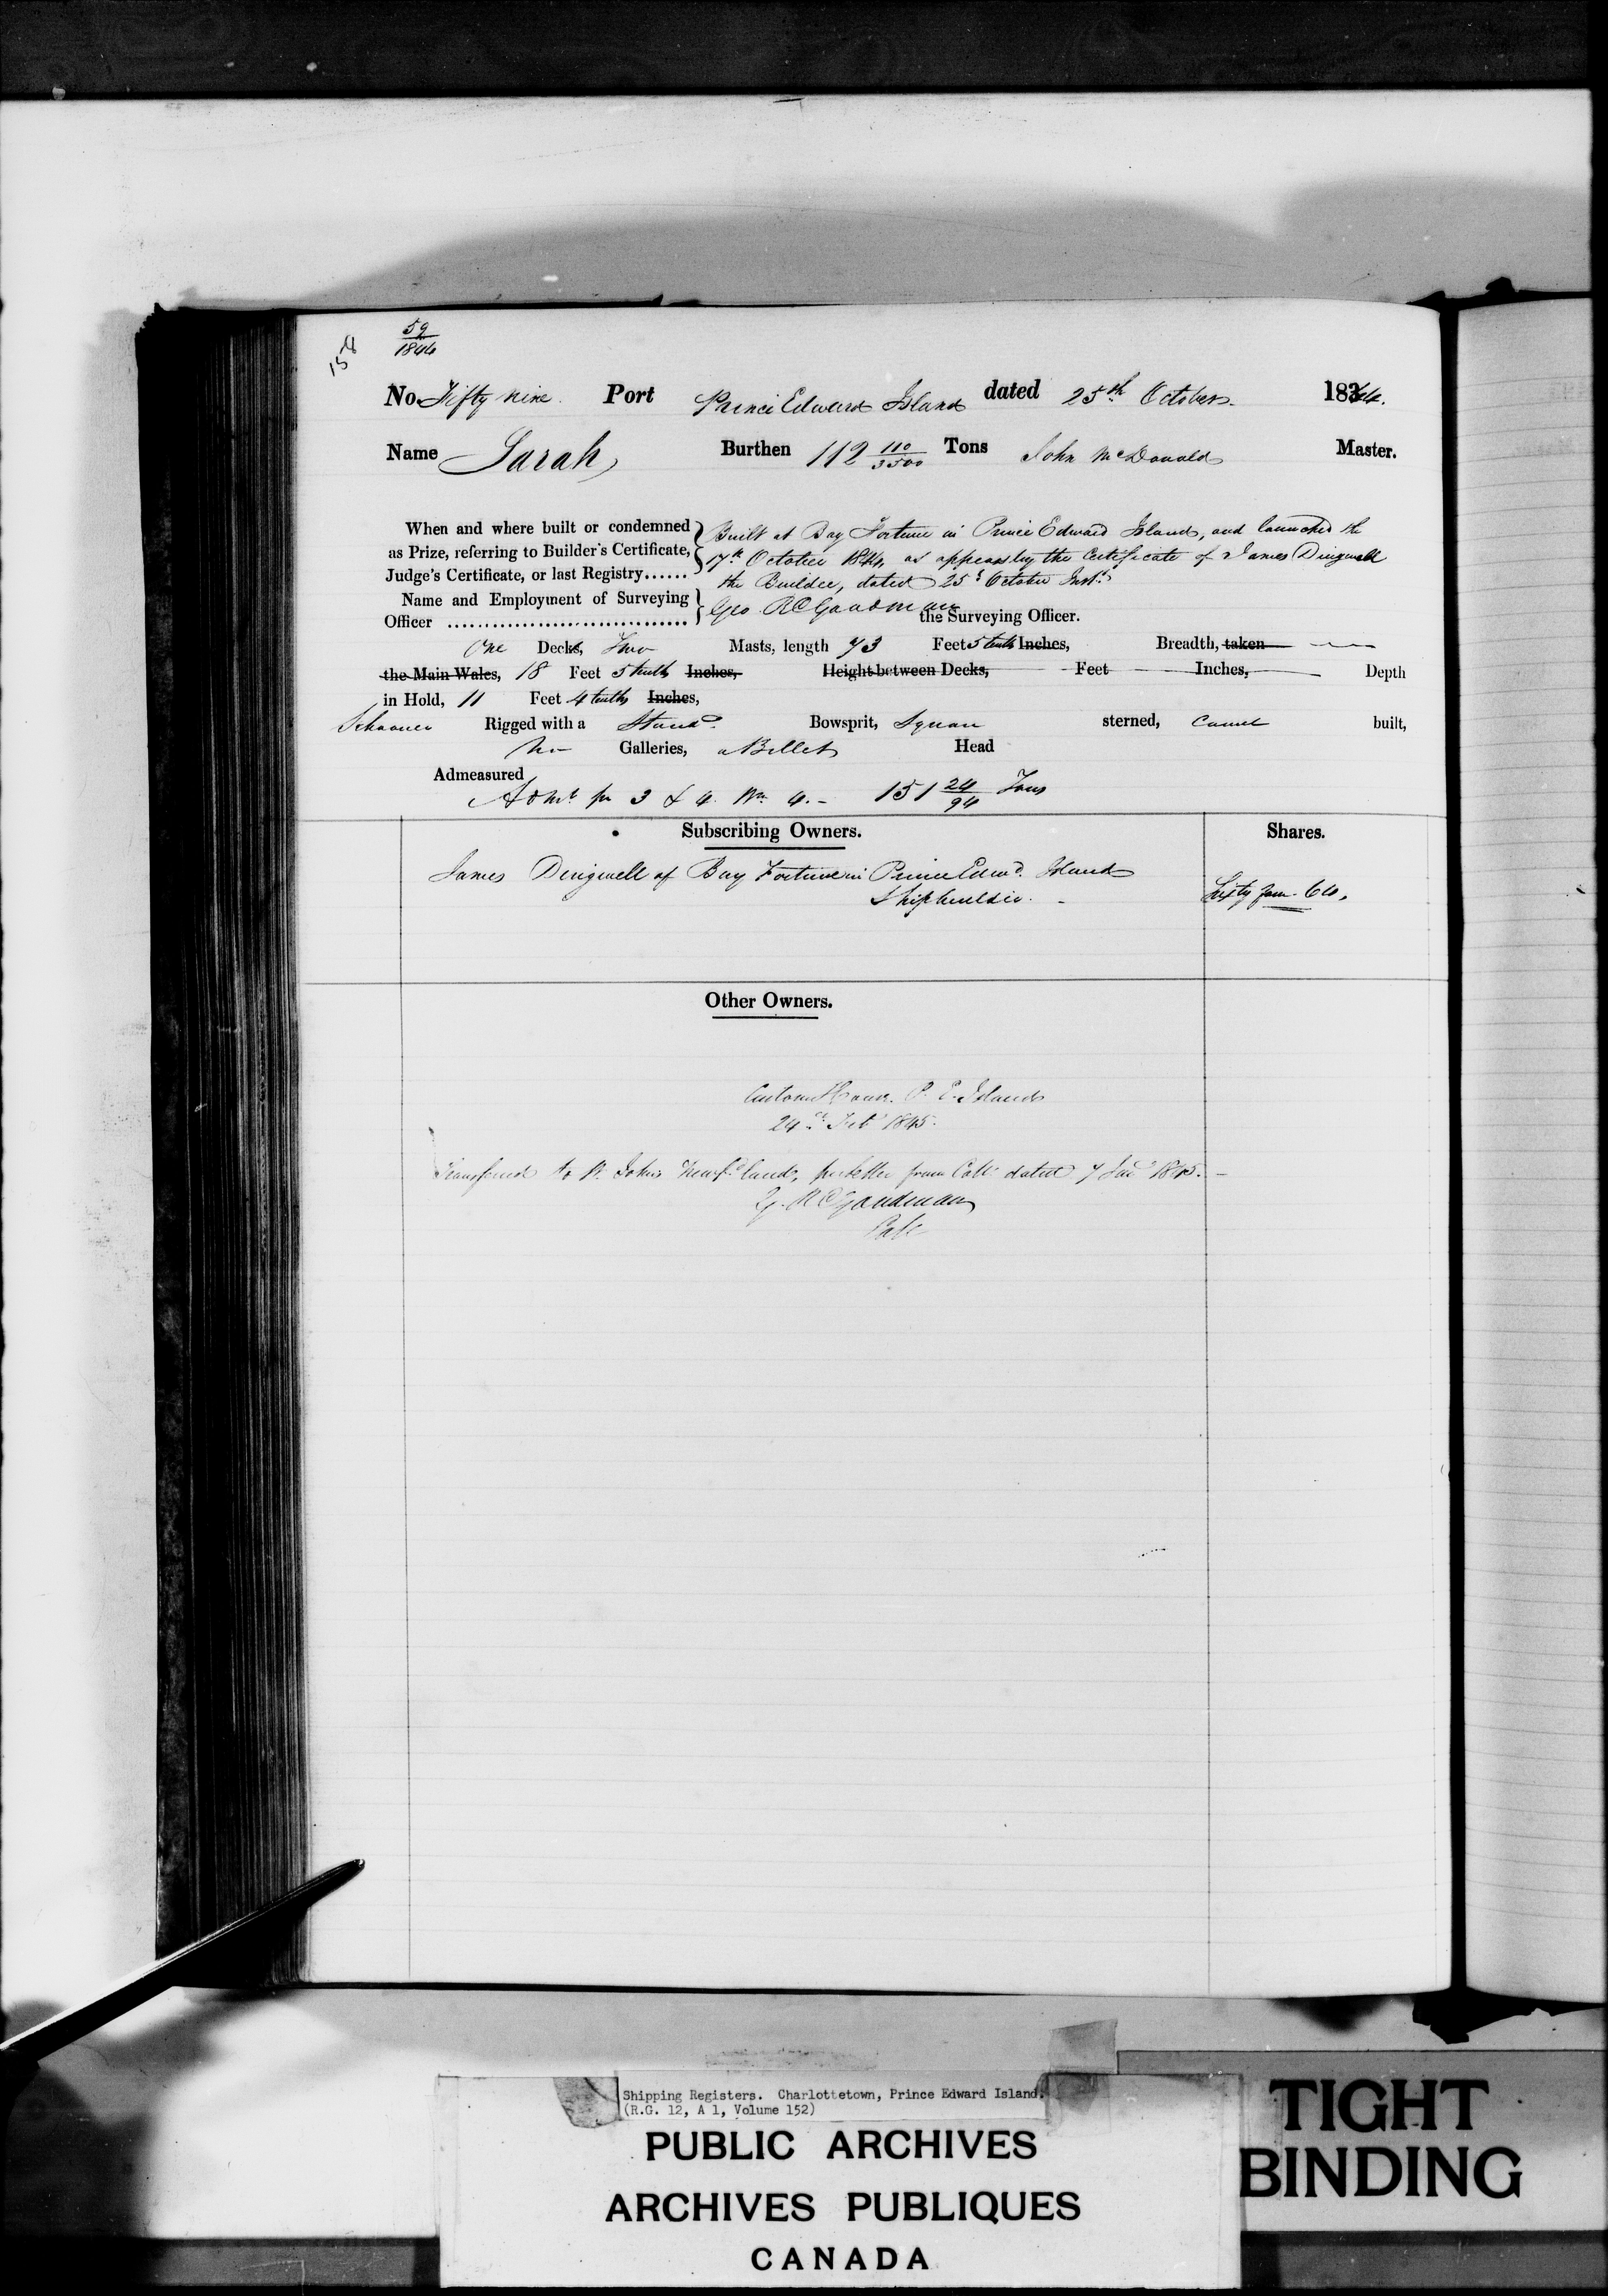 158
59
1844
No. Fifty nine. Port Prince Edward Island dated 25th October. 1844.
Name Sarah Burthen 112 110/3500 Tons John McDonald Master.
When and where built or condemned as Prize, referring to Builder's Certificate, Judge's Certificate, or last Registry......
Built at Bay Fortune in Prince Edward Island, and launched the
17th October 1844, as appears by the Certificate of James Dingwell
the Builder, dated 25th October Inst.
Name and Employment of Surveying
Officer ................................ Geo. R C Goodman the Surveying Officer.
One Decks, Two Masts, length 73 Feet 5 tenths Inches, Breadth, taken
the Main Wales, 18 Feet 5 tenths Inches, Height between Decks, Feet Inches, Depth
in Hold, 11 Feet 4 tenths Inches,
Schooner Rigged with a Stand.g Bowsprit, Square sterned, Carvel built,
No Galleries, a Billet Head
Admeasured
Adm.t pr 3 & 4. Wm. 4. - 151 24/94 Tons
Subscribing Owners. Shares.
James Dingwell of Bay Fortune in Prince Edwd. Island
Shipbuilder. - Sixty four. 64.
Other Owners.
Custom House. P. E. Island
24th Feb 1845.
Transferred to St. Johns Newfd.land, pr letter from Collr. dated 7 Jan 1845. -
G. R C Goodman
Shipping Registers. Charlottetown, Prince Edward Island.
(R.G. 12, A 1, Volume 152)
PUBLIC ARCHIVES
ARCHIVES PUBLIQUES
CANADA
TIGHT
BINDING